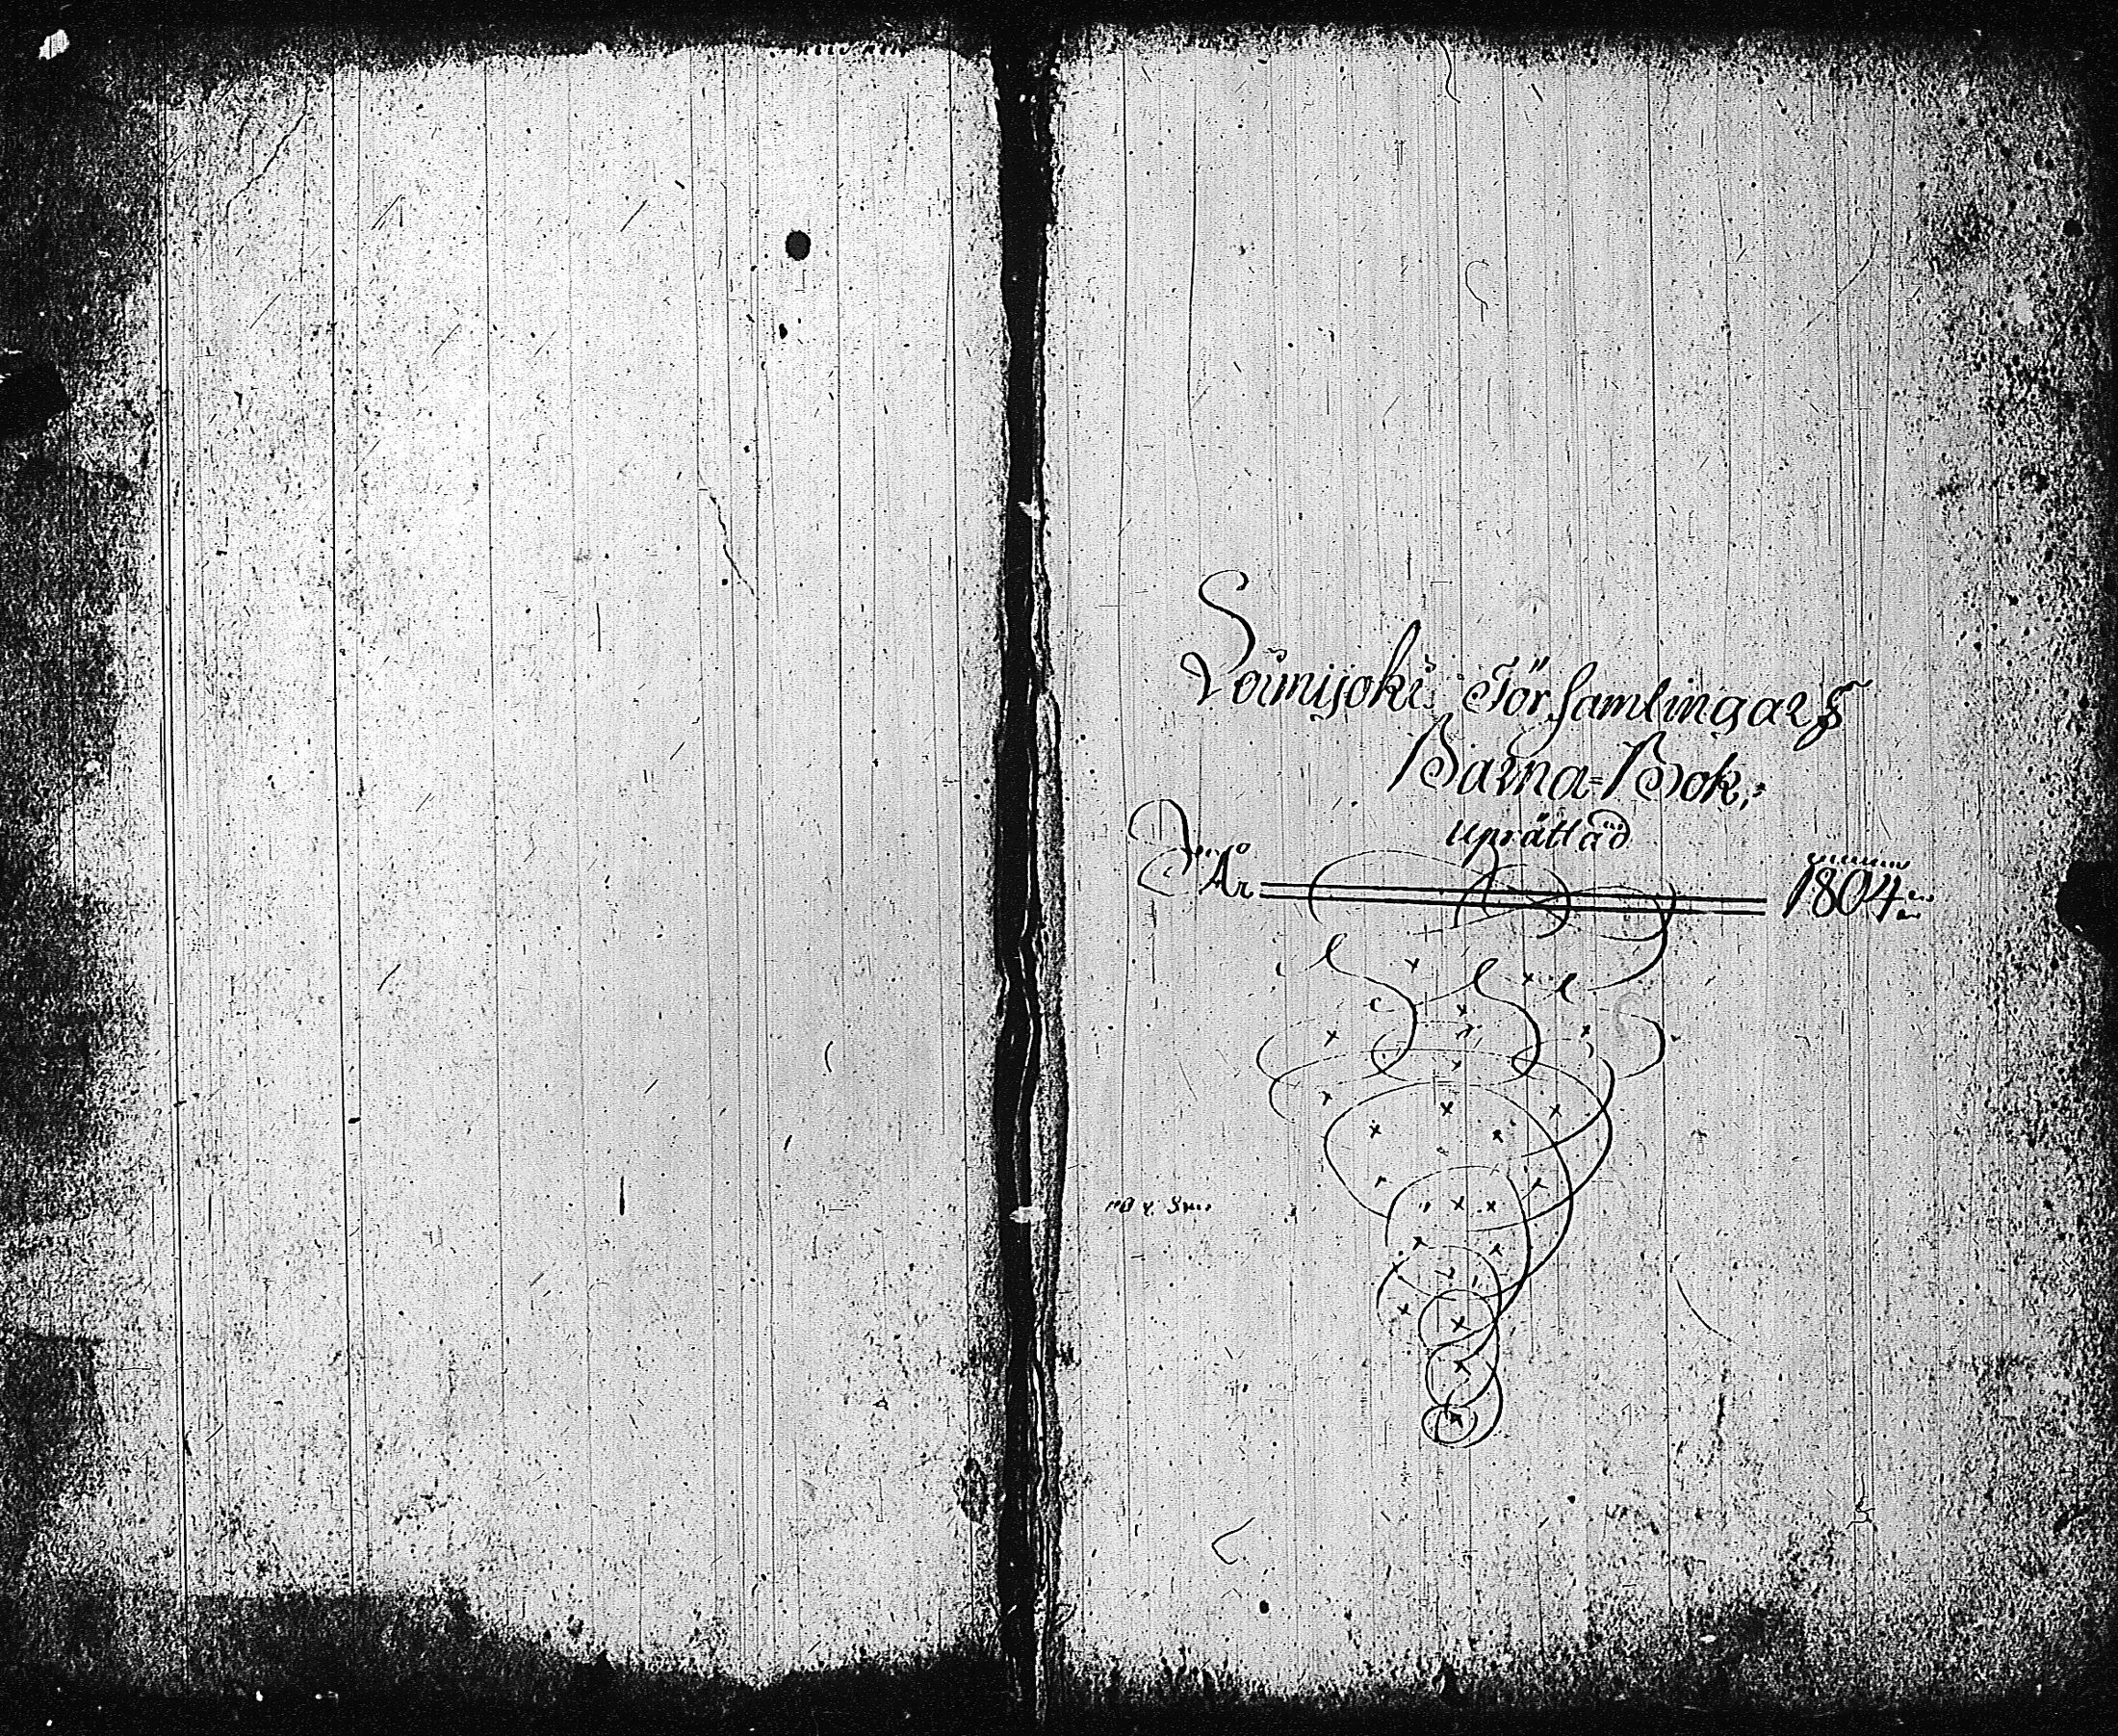 Loimijoki Församlingars
Barna=Bok;
Uprättad
År 1804